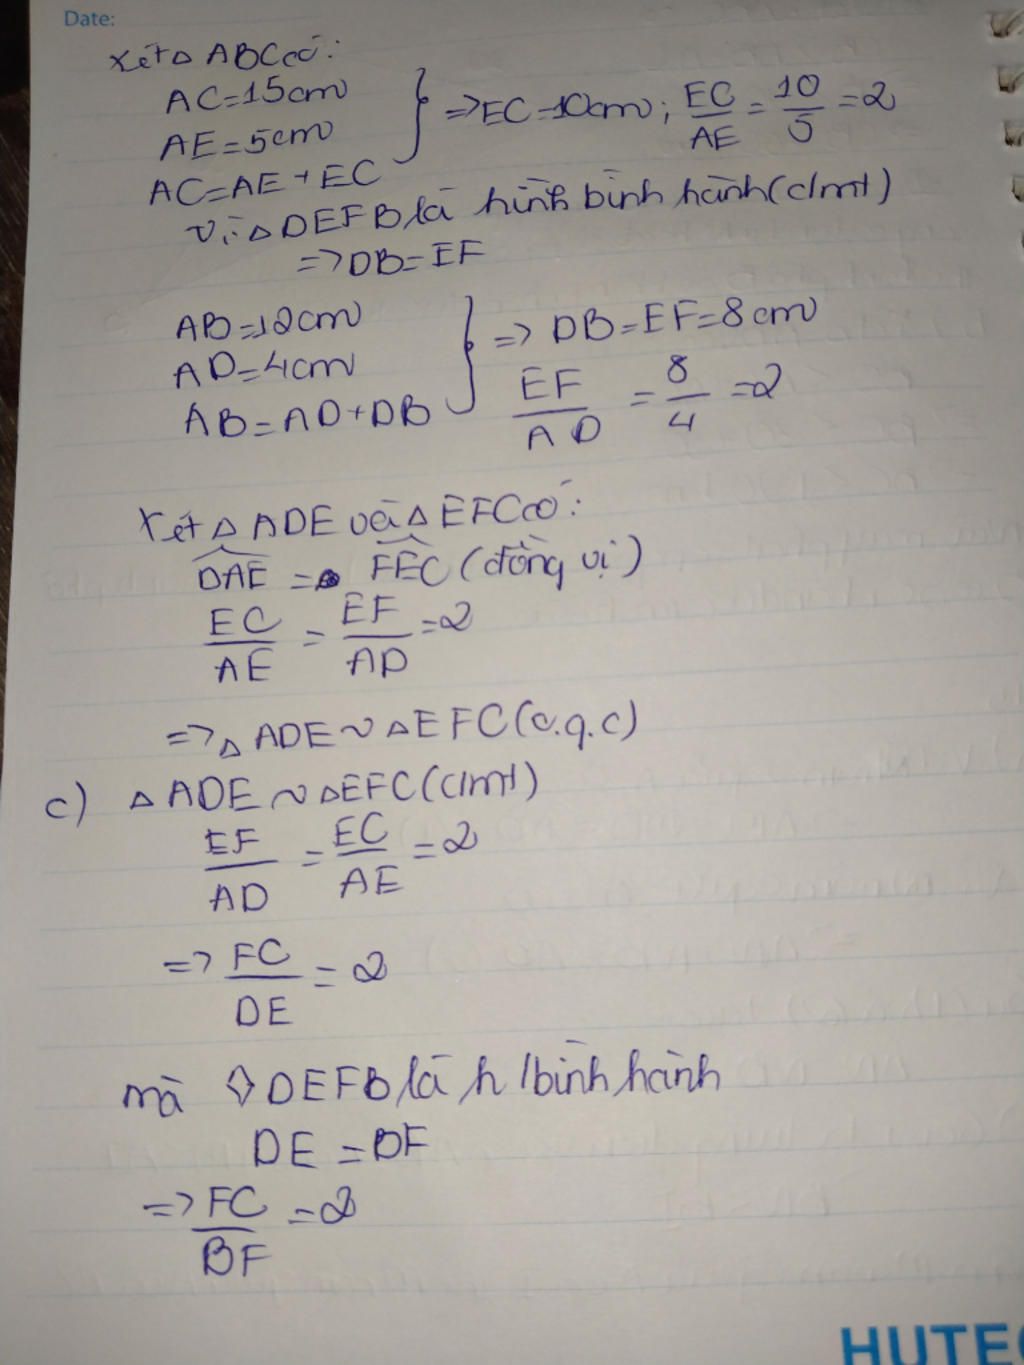 Date:
Xét △ ABC có:
AC=15cm
AE=5cm
AC=AE+EC
} => EC=10cm; EC/AE = 10/5 =2
Vì △ DEFB là hình bình hành (clmt)
=> DB=EF
AB=12cm
AD=4cm
AB=AD+DB
} => DB=EF=8cm
EF/AD = 8/4 =2
Xét △ ADE và △ EFC có:
DAE = FEC (đồng vị)
EC/AE = EF/AD =2
=> △ ADE ~ △EFC (c.g.c)
c) △ ADE ~ △EFC (clmt)
EF/AD = EC/AE =2
=> FC/DE = 2
mà ◊ DEFB là h/bình hành
DE = BF
=> FC/BF =2
HUTEC